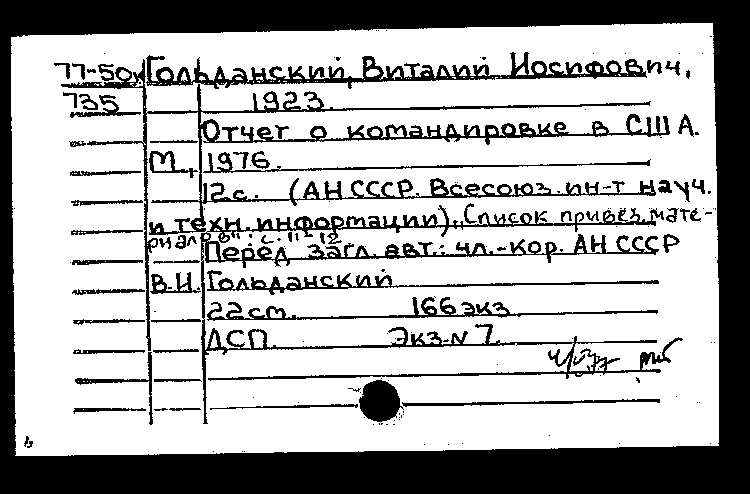 77-50к Гольданский, Виталий Иосифович,
735 1923.
Отчет о командировке в США.
М., 1976.
12с. (АН СССР. Всесоюз. ин-т науч.
и техн. информации). „Список привез. мате-
риалов": с. 11-12
Перед загл. авт.: чл.-кор. АН СССР
В.И. Гольданский
22 см. 166 экз
ДСП. Экз. N 7.